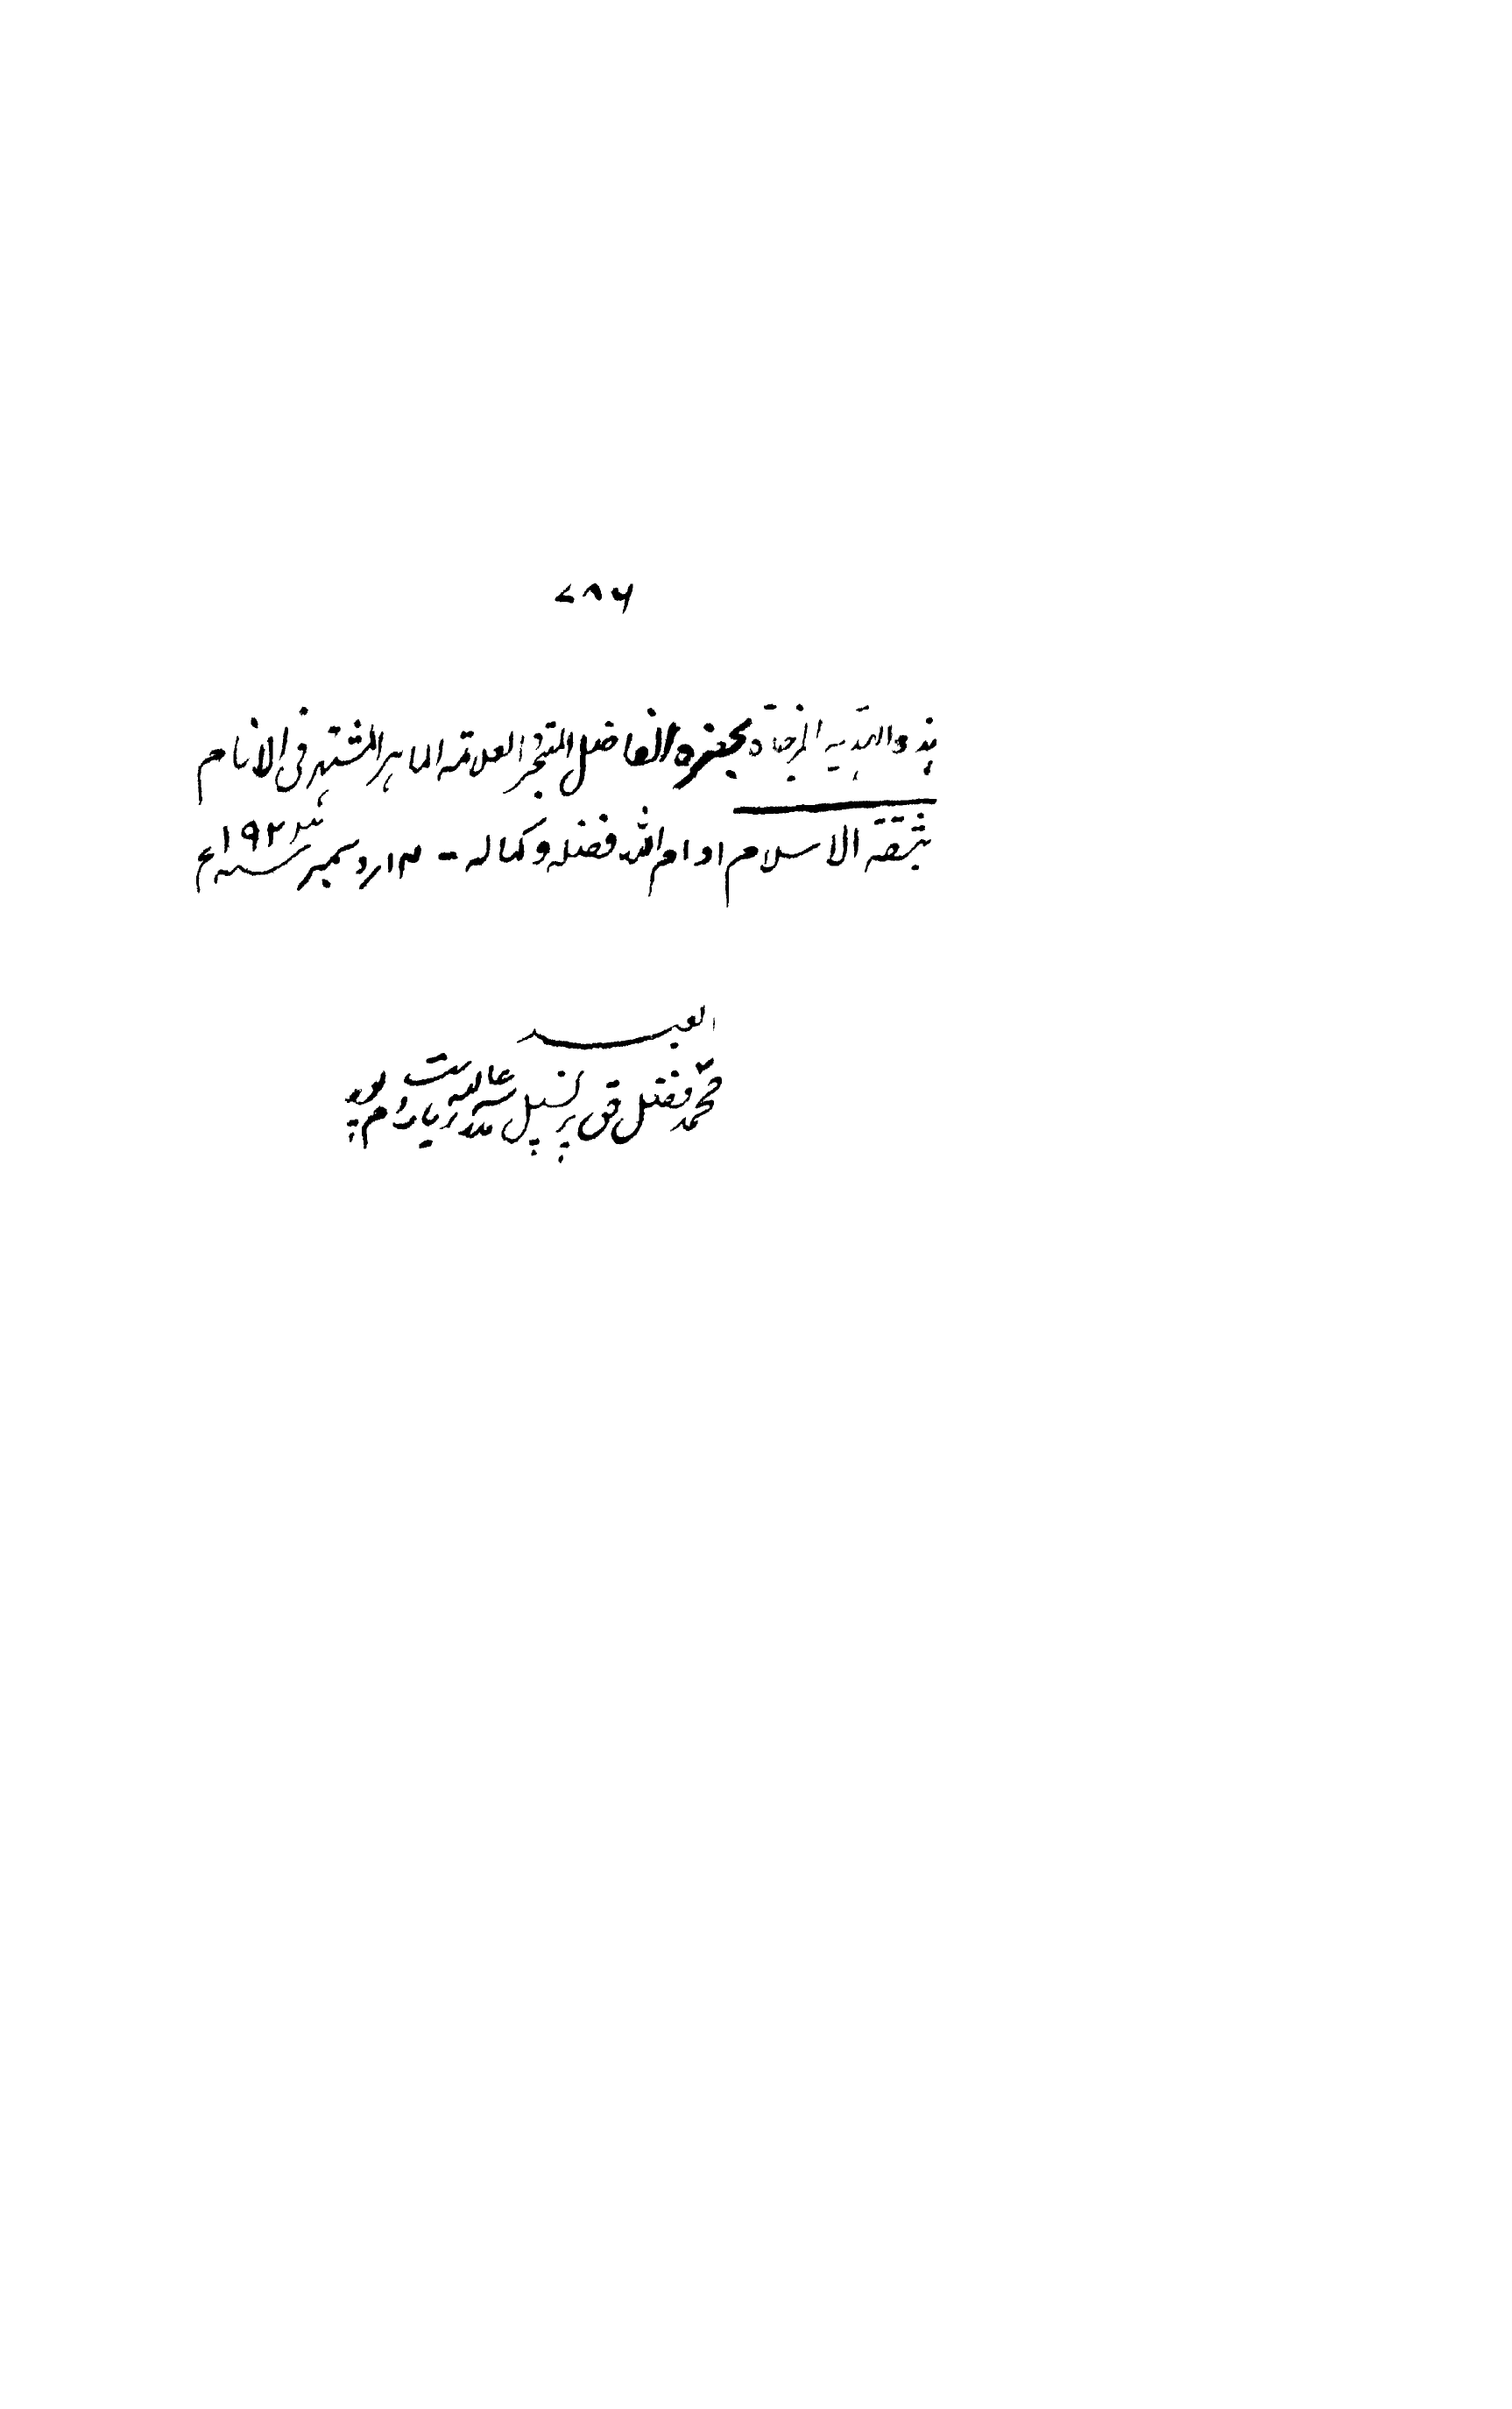 ۷۸۶
هذه الهدیه المزجاة بحضره الفاضل المتبحر العلامة الماهر المشتهر فی الانام
بثقة الاسلام ادام الله فضله وکماله - ۱۳ر دسمبر سنه ۱۹۲۳ء
العبد
محمد فضل حق پرنسپل مدرسه عالیه ریاست رام پور